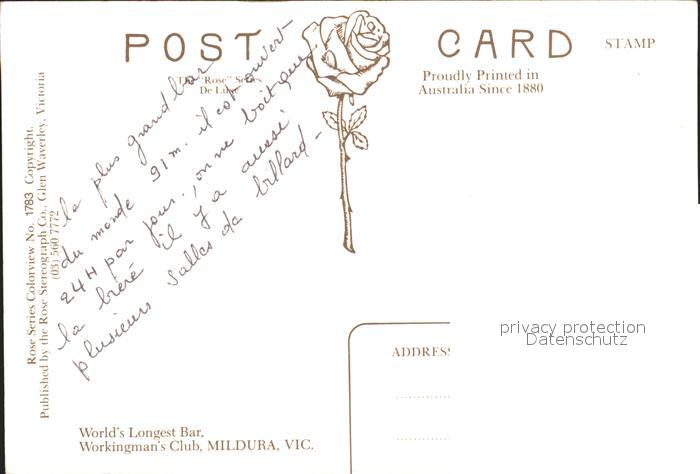 POST CARD
STAMP
The "Rose" Series
De Luxe
Proudly Printed in
Australia Since 1880
le plus grand bar
du monde 91m. il est ouvert
24H par jour., on ne boit que
la bière il y a aussi
plusieurs salles de billard-
Rose Series Colorview No. 1783 Copyright.
Published by the Rose Stereograph Co., Glen Waverley, Victoria
(03) 560 7772
privacy protection
Datenschutz
ADDRESS
World's Longest Bar,
Workingman's Club, MILDURA, VIC.